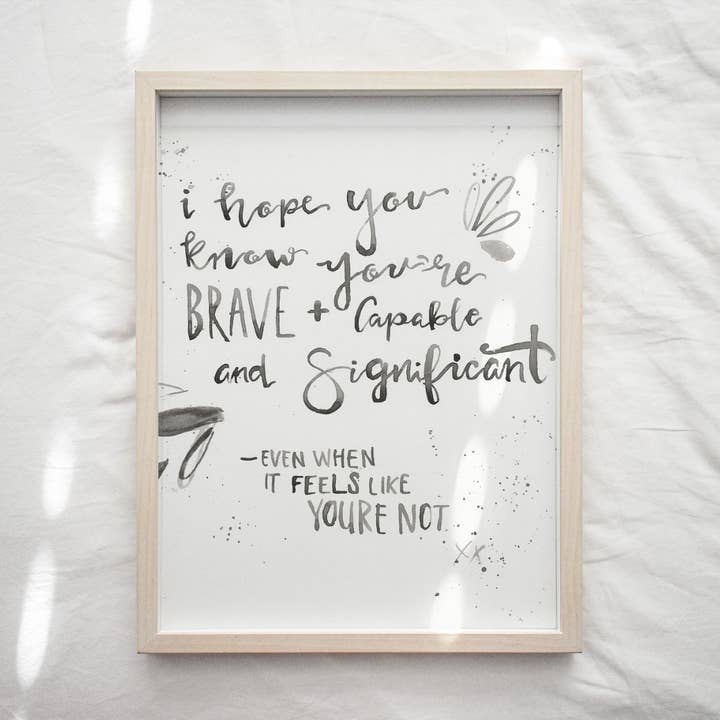 i hope you
know you're
BRAVE + Capable
and Significant
—EVEN WHEN
IT FEELS LIKE
YOURE NOT
xx